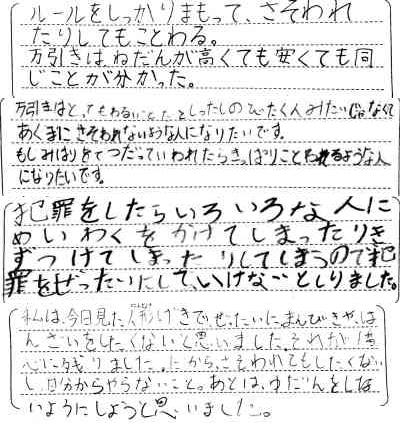 ルールをしっかりまもって、さそわれ
たりしてもことわる。
万引きは、ねだんが高くても安くても同
じことが分かった。
万引きはとってもわるいことだとしったしのび
たく人みたいじゃなくて
あくまにさそわれないような人になりたいです。
もしみはりをてつだっていわれたらきっぱりことわれるような人
になりたいです。
犯罪をしたらいろいろな人に
めいわくをかけてしまったりき
ずつけてしまったりしてしまうので犯
罪をぜったいにしていけないとしりました。
私は、今日見た人形げきで、ぜったいにまんびきや、は
んざいをしたくないと思いました。それが1番
心に残りました。だから、さそわれてもしたくない
し、自分からやらないこと。あとは、ゆだんをしな
いようにしようと思いました。